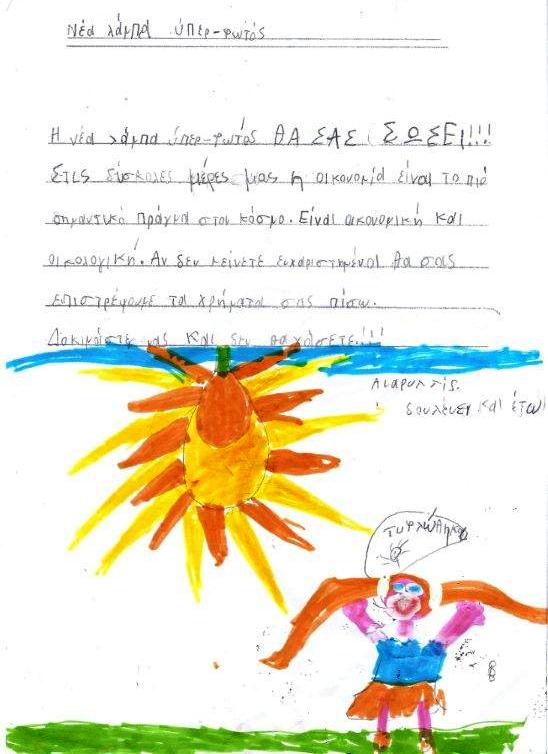 Νέα λάμπα ύπερ-φωτός
Η νέα λάμπα ύπερ-φωτός ΘΑ ΣΑΣ ΣΩΣΕΙ!!!
Στις δύσκολες μέρες μας η οικονομία είναι το πιό
σημαντικό πράγμα στον κόσμο. Είναι οικονομική και
οικολογική. Αν δεν μείνετε ευχαριστημένοι θα σας
επιστρέψουμε τα χρήματα σας πίσω.
Δοκιμάστε μας και δεν θα χάσετε!!!
δουλεύει και έτσι
τυφλώθηκα